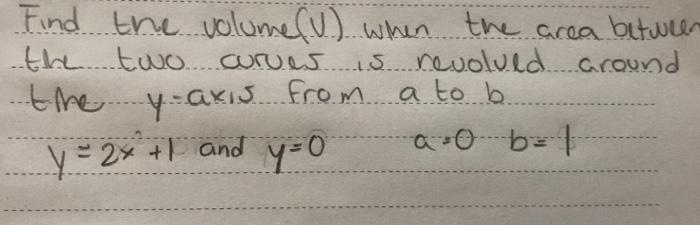 Find the volume(V) when the area between
the two curves is revolved around
the y-axis from a to b
y = 2x² + 1 and y = 0 a = 0 b = 1